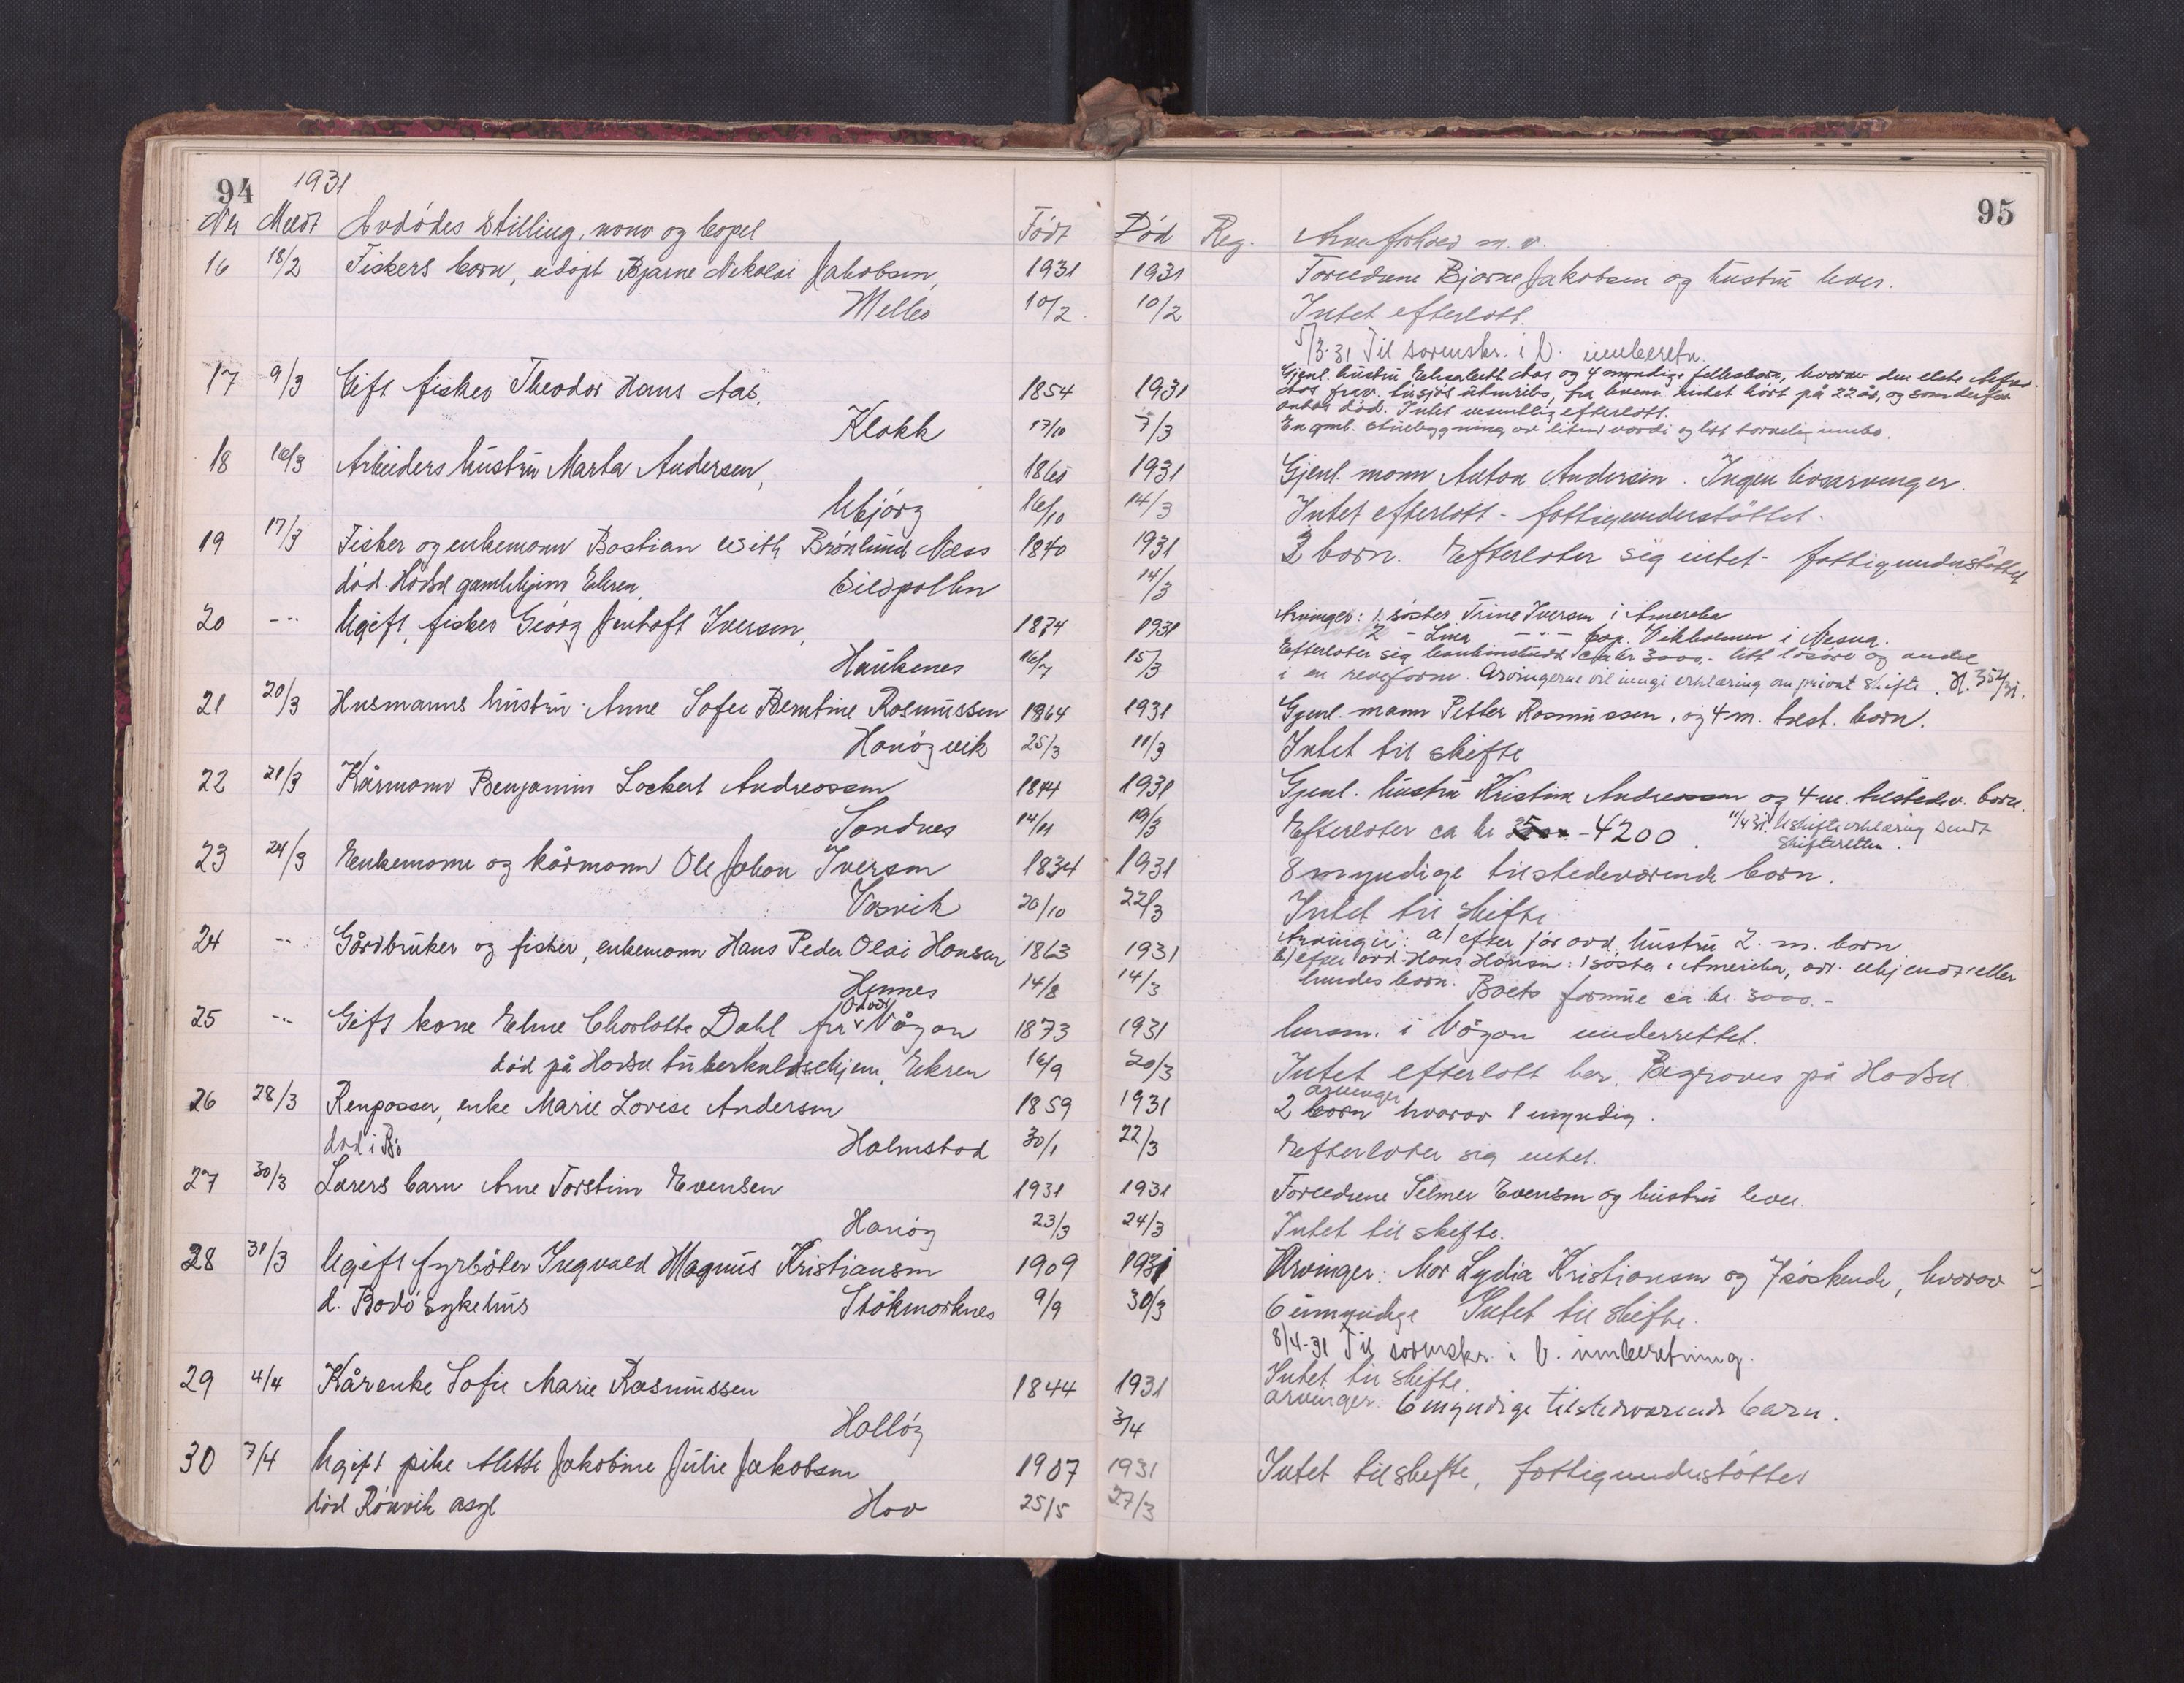 94 1931
Nr Meldt Avdødes stilling, navn og bopel Født Død Reg. Arveforhold m. v. 95
16 18/2 Fiskers barn, udøpt Bjarne Nikolai Jakobsen, 1931 1931 Foreldrene Bjarne Jakobsen og hustru lever.
Melbo 10/2 10/2 Intet efterlatt.
5/3-31 Til sorenskr. i V. innberetn.
17 9/3 Gift fisker Theodor Hans Aas, 1854 1931 Gjenl. hustru Elisabeth Aas og 4 myndige fellesbarn, hvorav den elste
Aas forsv. tilsjøs utenriks, fra hvem intet hørt på 22 år, og som derfor
antas død. Intet vesentlig efterlatt.
Klakk 17/10 7/3 En gml. stuebygning av liten verdi og litt tarvelig innbo.
18 16/3 Arbeiders hustru Marta Andersen, 1860 1931 Gjenl. mann Anton Andersen. Ingen livsarvinger.
Ubjørg 16/10 14/3 Intet efterlatt - fattigunderstøttet.
19 17/3 Fisker og enkemann Bastian With Brønlund Næss 1840 1931 3 barn. Efterlater sig intet - fattigunderstøttet
død Hadsel gamlehjem Ekren, Sildpollen 14/3
20 -"- Ugift fisker Georg Jentoft Iversen, 1874 1931 Arvinger: 1 søster Trine Iversen i Amerika
2 - Lina -"- bop. Vikholmen i Nesna.
Haukenes 16/7 15/3 Efterlater sig bankinnskudd ca kr 3000,- litt løsøre og andel
i en revefarm. Arvingerne vil inngi erklæring om privat skifte. H. 354/31.
21 20/3 Husmanns hustru Anne Sofie Berntine Rasmussen 1864 1931 Gjenl. mann Petter Rasmussen, og 4 m. tilst. barn.
Hanøyvik 25/3 11/3 Intet til skifte
22 21/3 Kårmann Benjamin Lockert Andreassen 1844 1931 Gjenl. hustru Kristine Andreassen og 4 m. tilstedev. barn.
Sandnes 14/11 19/3 Efterlater ca kr - 4200. 11/4 31. Uskifteerklæring sendt
skifteretten.
23 24/3 Enkemann og kårmann Ole Johan Iversen 1834 1931 8 myndige tilstedeværende barn.
Vasvik 20/10 22/3 Intet til skifte.
24 -"- Gårdbruker og fisker, enkemann Hans Peder Olai Hansen 1863 1931 Arvinger: a) efter før avd. hustru 2. m. barn
b) efter avd. Hans Hansen: 1 søster i Amerika, adr. ukjendt eller
Hennes 14/8 14/3 hendes barn. Boets formue ca. kr. 3000.-
25 -"- Gift kone Eline Charlotte Dahl fra Vågan 1873 1931 lensm. i Vågan underrettet.
død på Hadsel tuberkulosehjem, Ekren 16/9 20/3 Intet efterlatt her. Begraves på Hadsel.
26 28/3 Renposser, enke Marie Lovise Andersen 1859 1931 2 barn arvinger hvorav 1 myndig.
død i Bø Halmstad 30/1 22/3 Efterlater sig intet.
27 30/3 Lærers barn Arne Torstein Evensen 1931 1931 Foreldrene Selmer Evensen og hustru lever.
Hanøy 23/3 24/3 Intet til skifte.
28 31/3 Ugift fyrbøter Ingvald Magnus Kristiansen 1909 1931 Arvinger: Mor Lydia Kristiansen og 7 søskende, hvorav
d. Bodø sykehus Stokmarknes 9/9 30/3 6 umyndige Intet til skifte.
8/4-31 Til sorenskr. i V. innberetning.
29 4/4 Kårenke Sofie Marie Rasmussen 1844 1931 Intet til skifte.
arvinger: 6 myndige tilstedeværende barn.
Halløy 3/4
30 7/4 Ugift pike Mette Jakobine Julie Jakobsen 1907 1931 Intet til skifte, fattigunderstøttet
død Rønvik asyl Hov 25/5 27/3